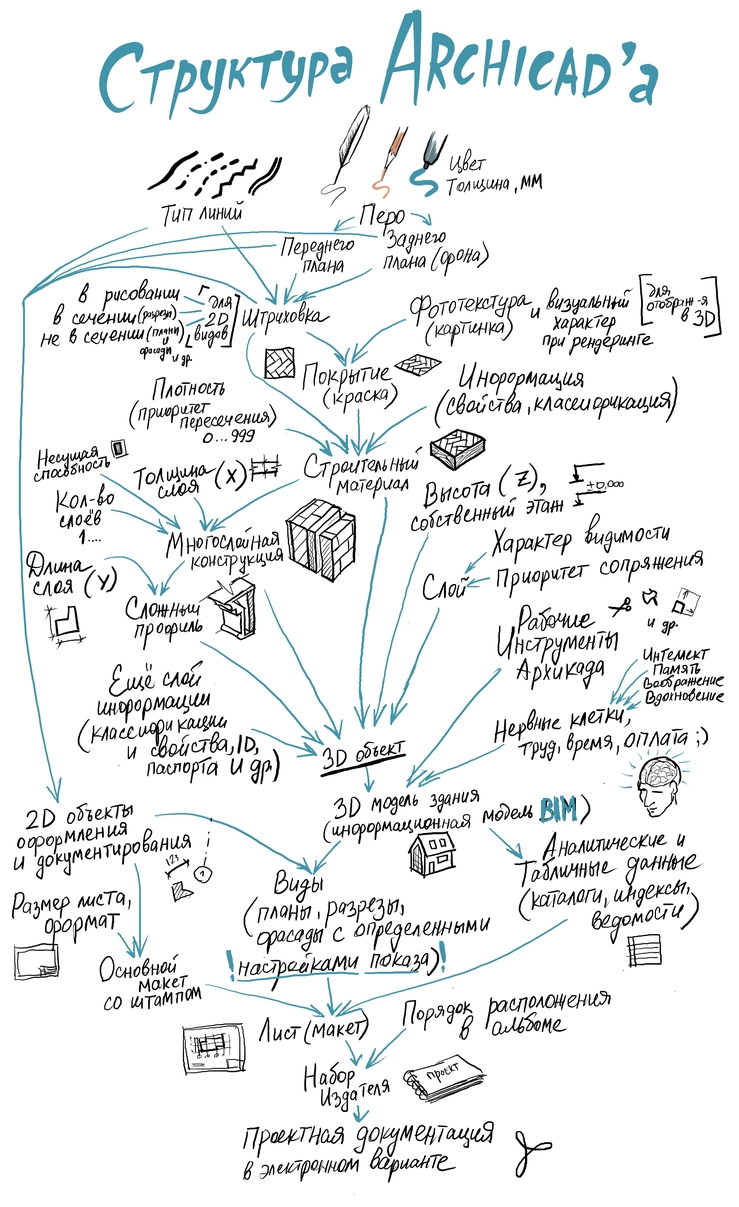 Структура ARCHICAD'а
Цвет
Толщина, мм
Тип линий
Перо
Переднего
плана
Заднего
плана (фона)
в рисовании
в сечении (разрезы)
не в сечении (планы
и
фасады
и др.
для
2D
видов
Штриховка
Фототекстура
(картинка)
и визуальный
характер
при рендеринге
для
отображ-я
в 3D
Покрытие
(краска)
Плотность
(приоритет
пересечения)
0...999
Информация
(свойства, классификация)
Несущая
способность
Толщина
слоя (X)
Строительный
материал
Кол-во
слоёв
1....
Высота (Z),
собственный этаж
±0,000
Многослойная
конструкция
Характер видимости
Приоритет сопряжения
Слой
Длина
слоя (Y)
Сложный
профиль
Рабочие
Инструменты
Архикада
и др.
Интелект
Память
Воображение
Вдохновение
Ещё слой
информации
(классификации
и свойства, ID,
паспорта и др.)
Нервные клетки,
труд, время, оплата ;)
3D объект
2D объекты
оформления
и документирования
123
1
3D модель здания
(информационная модель BIM)
Аналитические и
Табличные данные
(каталоги, индексы,
ведомости)
Виды
(планы, разрезы,
фасады с определенными
! настройками показа) !
Размер листа,
формат
Основной
макет
со штампом
Лист (макет)
Порядок расположения
в альбоме
Набор
Издателя
проект
Проектная документация
в электронном варианте